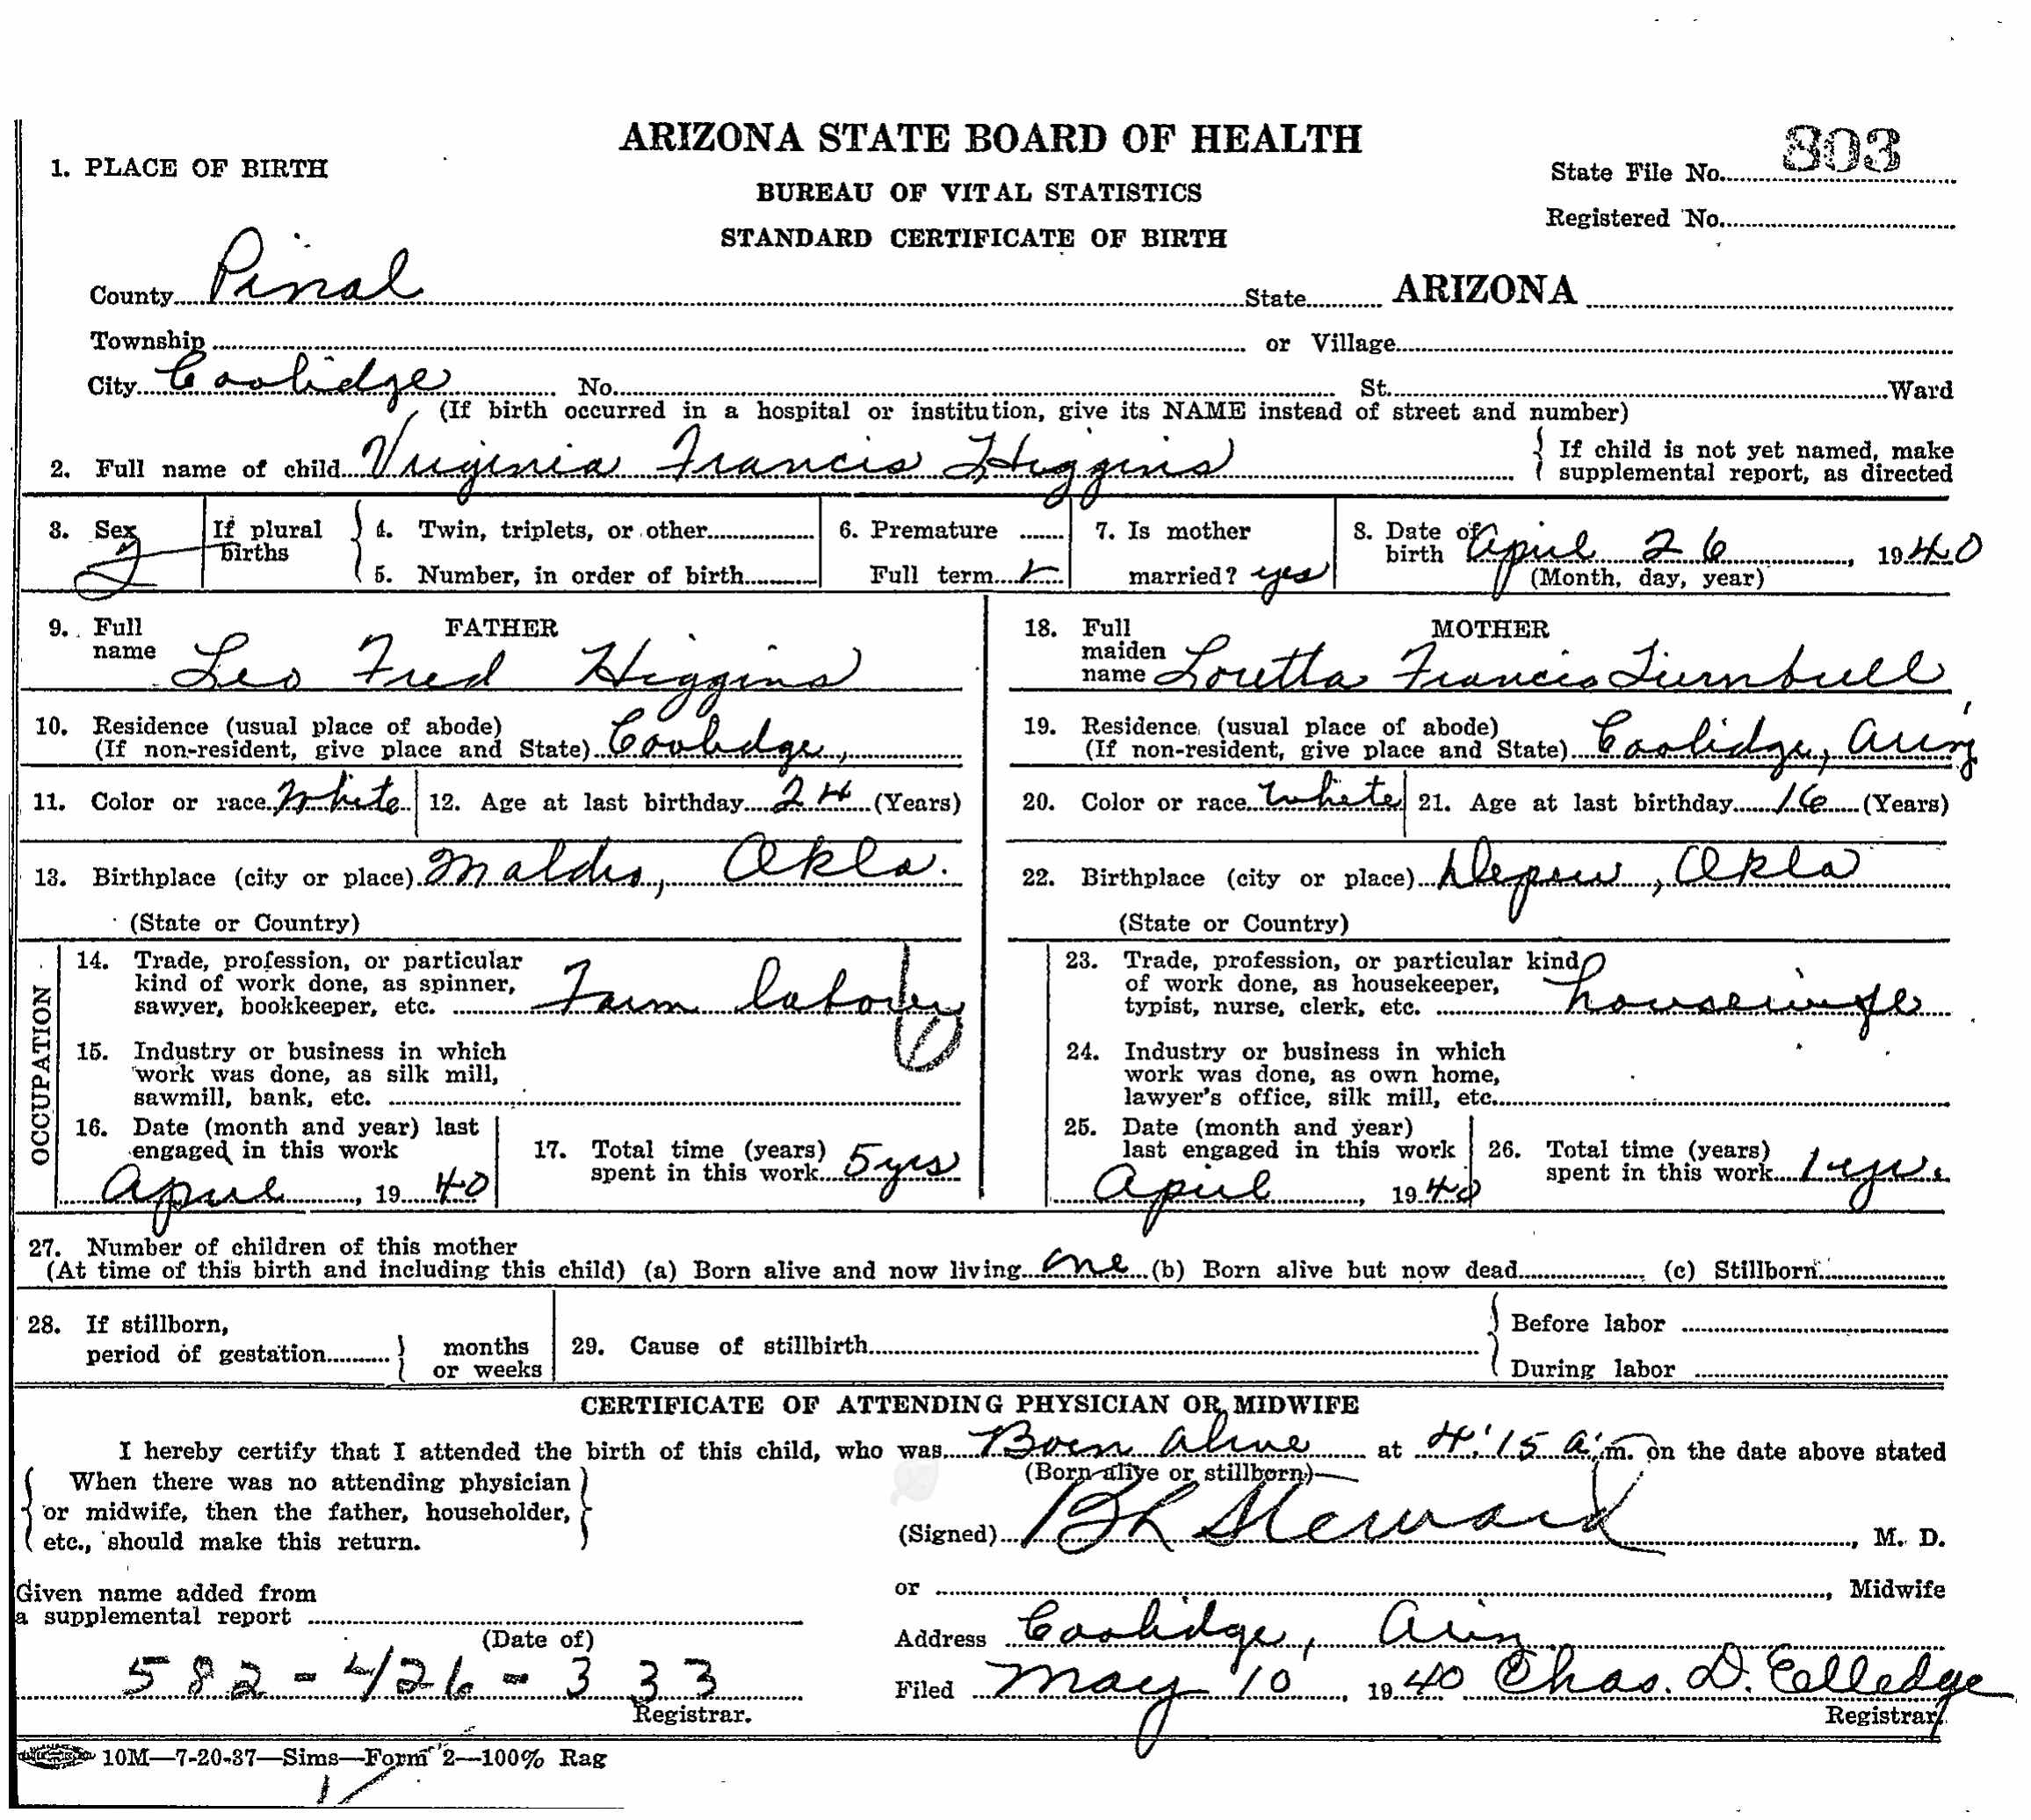 ARIZONA STATE BOARD OF HEALTH
1. PLACE OF BIRTH
State File No. 803
BUREAU OF VITAL STATISTICS
Registered No.
STANDARD CERTIFICATE OF BIRTH
County Pinal State ARIZONA
Township or Village
City Coolidge No. St. Ward
(If birth occurred in a hospital or institution, give its NAME instead of street and number)
2. Full name of child Virginia Francis Higgins { If child is not yet named, make
supplemental report, as directed
3. Sex If plural births { 4. Twin, triplets, or other 6. Premature 7. Is mother 8. Date of
5. Number, in order of birth Full term married? yes birth April 26, 1940
(Month, day, year)
9. Full name FATHER Leo Fred Higgins
10. Residence (usual place of abode)
(If non-resident, give place and State) Coolidge,
11. Color or race White 12. Age at last birthday 24 (Years)
13. Birthplace (city or place) Okla.
(State or Country)
OCCUPATION
14. Trade, profession, or particular
kind of work done, as spinner,
sawyer, bookkeeper, etc. Farm laborer
15. Industry or business in which
work was done, as silk mill,
sawmill, bank, etc.
16. Date (month and year) last
engaged in this work
April, 1940
17. Total time (years)
spent in this work 5 yrs
18. Full maiden name MOTHER Loretta Francis Turnbull
19. Residence (usual place of abode)
(If non-resident, give place and State) Coolidge, Ariz
20. Color or race White 21. Age at last birthday 16 (Years)
22. Birthplace (city or place) Depew, Okla
(State or Country)
23. Trade, profession, or particular kind
of work done, as housekeeper,
typist, nurse, clerk, etc. housewife
24. Industry or business in which
work was done, as own home,
lawyer's office, silk mill, etc.
25. Date (month and year)
last engaged in this work
April, 1940
26. Total time (years)
spent in this work 1 yr.
27. Number of children of this mother
(At time of this birth and including this child) (a) Born alive and now living one (b) Born alive but now dead (c) Stillborn
28. If stillborn,
period of gestation } months or weeks
29. Cause of stillbirth { Before labor
During labor
CERTIFICATE OF ATTENDING PHYSICIAN OR MIDWIFE
I hereby certify that I attended the birth of this child, who was Born alive at 4:15 a.m. on the date above stated
(Born alive or stillborn)
{ When there was no attending physician
or midwife, then the father, householder,
etc., should make this return. }
(Signed) BL Steward, M. D.
or , Midwife
Given name added from
a supplemental report
(Date of)
Address Coolidge, Ariz
582-426-333
Registrar.
Filed May 10, 1940 Chas. D. Elledge
Registrar.
10M—7-20-37—Sims—Form 2—100% Rag